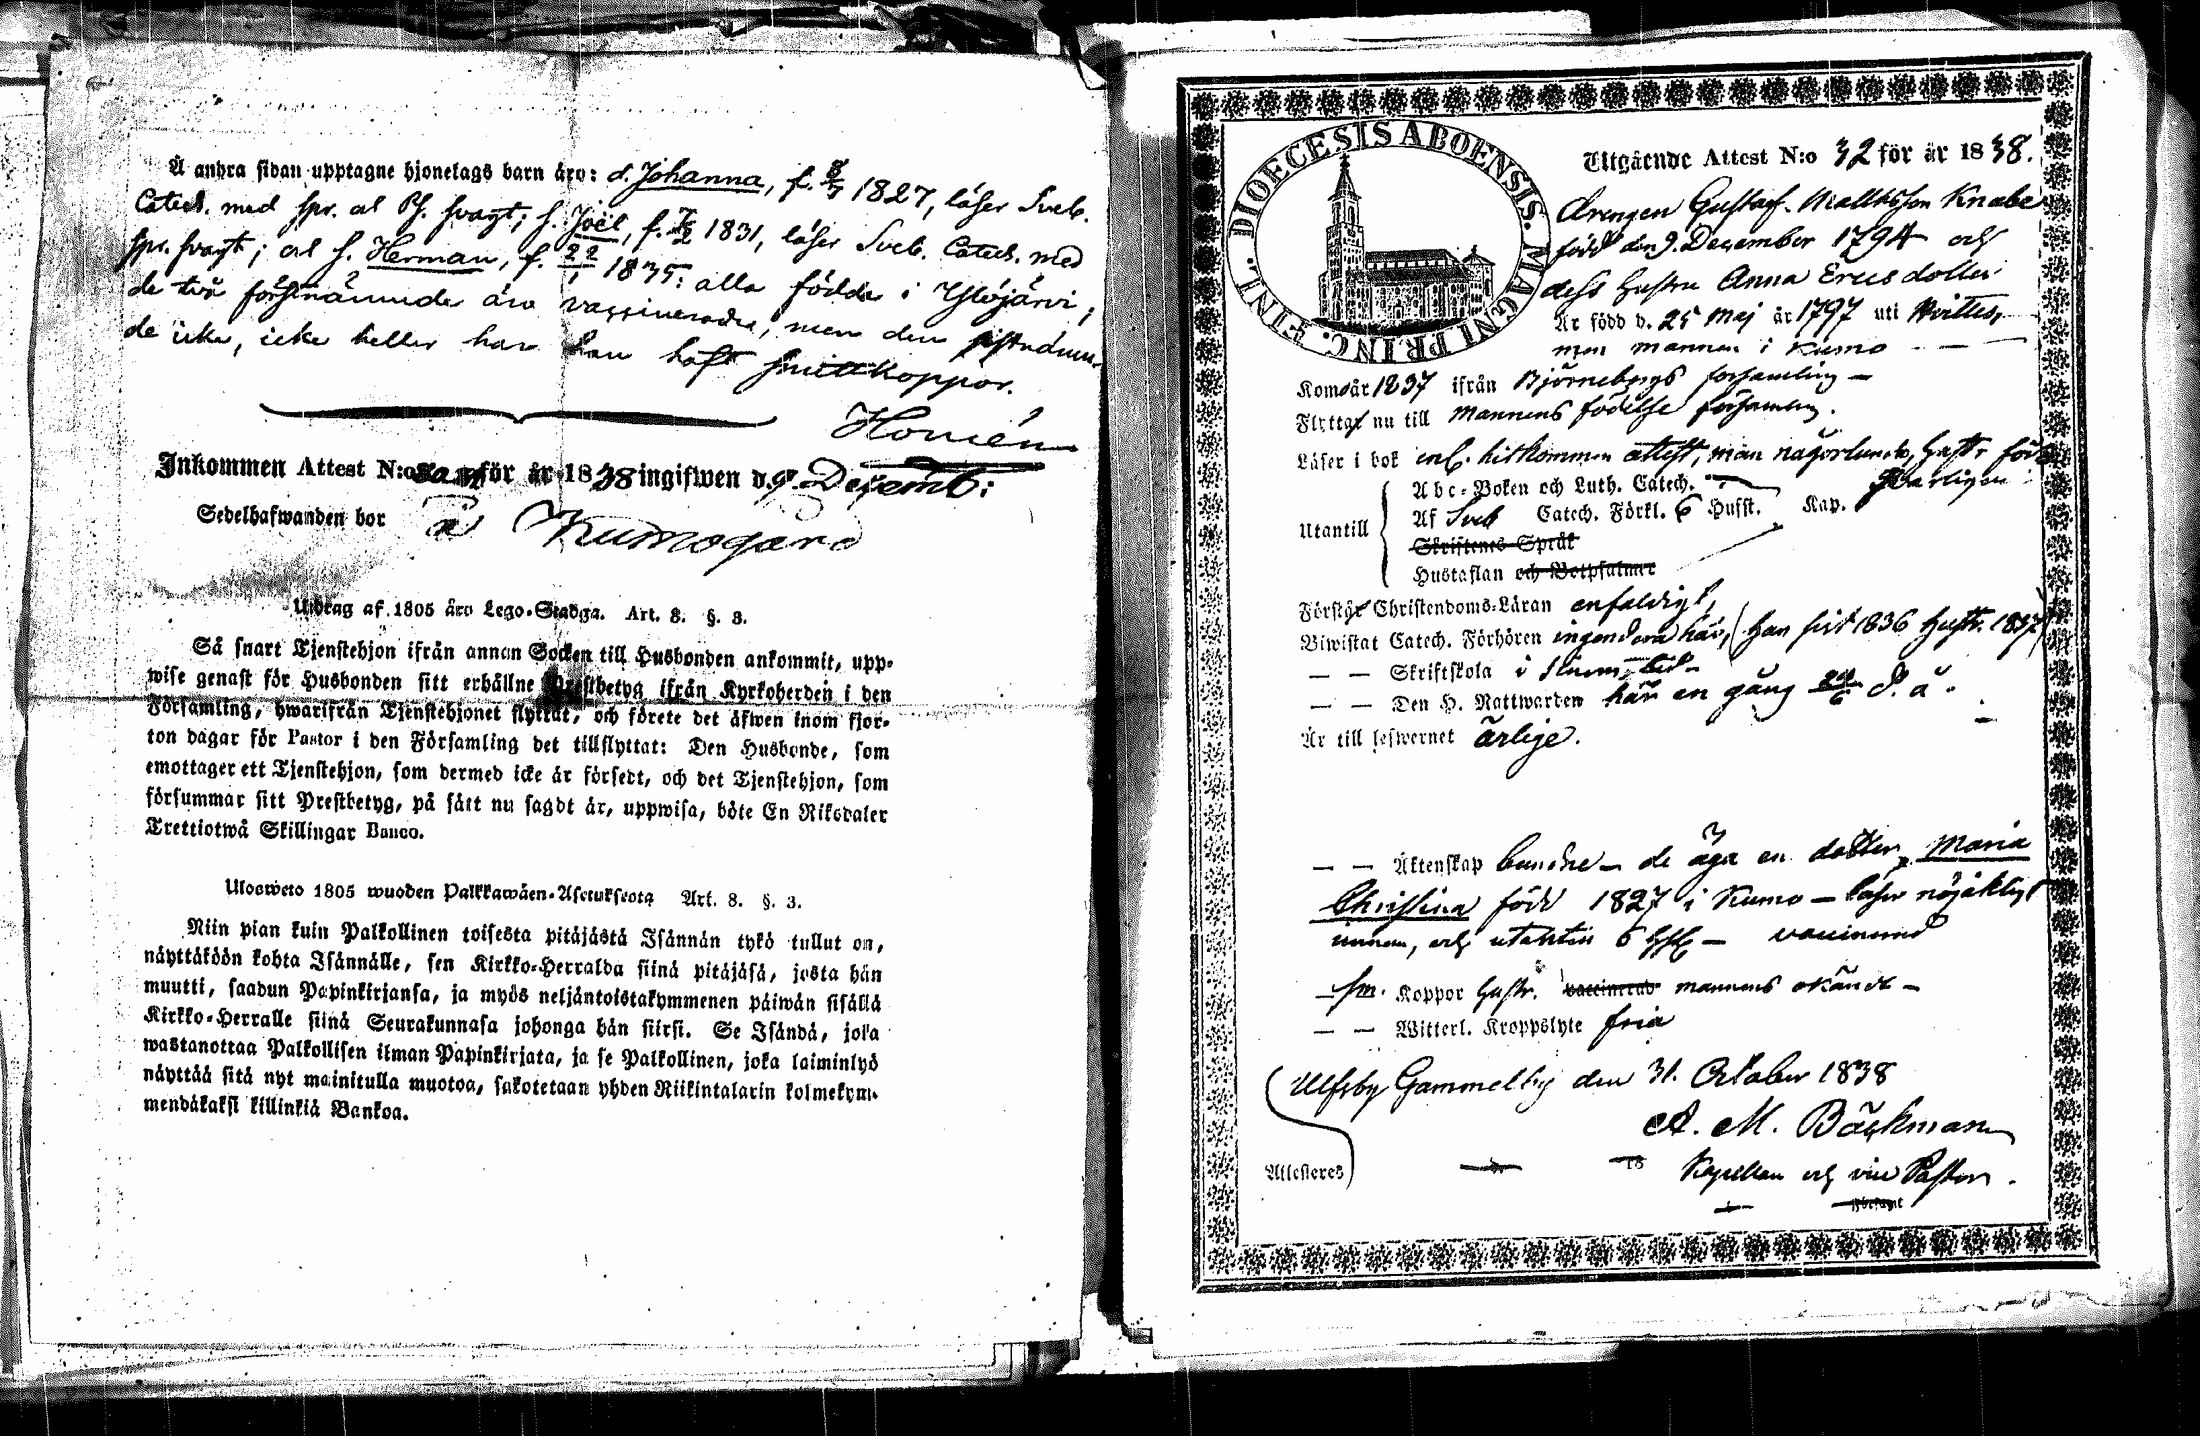 Å andra sidan upptagne hjonelags barn äro: d. Johanna, f. 8/7 1827, läser Sveb.
Catech. med spr. och Ps. svagt; s. Joël, f. 1831, läser Sveb. Catech. med
spr. svagt; och s. Herman, f. 22/1 1835: alla födda i Ylöjärvi;
de två förstnämnde äro vaccinerade, men den sistnämn-
de icke, icke heller har han haft smittkoppor.
Homén
Inkommen Attest N:o för år 1838 ingifwen d. 9 Decemb:
Sedelhafwanden bor å Kumogård
Utdrag af 1805 års Lego-Stadga. Art. 8. §. 3.
Så snart Tjenstehjon ifrån annan Socken till Husbonden ankommit, upp-
wise genast för Husbonden sitt erhållne Prestbetyg ifrån Kyrkoherden i den
Församling, hwarifrån Tjenstehjonet flyttat, och förete det äfwen inom fjor-
ton dagar för Pastor i den Församling det tillflyttat: Den Husbonde, som
emottager ett Tjenstehjon, som dermed icke är försedt, och det Tjenstehjon, som
försummar sitt Prestbetyg, på sätt nu sagdt är, uppwisa, böte En Riksdaler
Trettiotwå Skillingar Banco.
Ulosweto 1805 wuoden Palkkawäen-Asetuksesta Art. 8. §. 3.
Niin pian kuin Palkollinen toisesta pitäjästä Isännän tykö tullut on,
näyttäköön kohta Isännälle, sen Kirkko-Herralda siinä pitäjäsä, josta hän
muutti, saadun Papinkirjansa, ja myös neljäntoistakymmenen päiwän sisällä
Kirkko-Herralle siinä Seurakunnasa johonga hän siirsi. Se Isändä, joka
wastanottaa Palkollisen ilman Papinkirjata, ja se Palkollinen, joka laiminlyö
näyttää sitä nyt mainitulla muotoa, sakotetaan yhden Riikintalarin kolmekym-
mendäkaksi killinkiä Bankoa.
DIOECESIS ABOENSIS. MAGNI PRINC. FINL.
Utgående Attest N:o 32 för år 1838.
Drengen Gustaf Mattsson Knabe
född den 9. December 1794 och
dess hustru Anna Ericsdotter
Är född d. 25 Maj år 1797 uti Hvittis,
men mannen i Kumo
Kom år 1837 ifrån Björneborgs församling —
Flyttar nu till mannens födelse församling.
Läser i bok enl. hitkommen attest, man någorlunda, hustr. för
svarligen
Utantill
Abc-Boken och Luth. Catech.
Af Sveb Catech. Förkl. 6 Hufst. Kap.
Skriftenes Språk
Hustaflan och Botpsalmer
Förstår Christendoms-Läran enfaldigt,
Biwistat Catech. Förhören ingendera här, (han sist 1836 hustr. 1837)
— — Skriftskola i
— — Den H. Nattwarden här en gång d. å.
Är till lefwernet ärlige.
— — Äktenskap bundne — de äga en dotter, Maria
Christina född 1827 i Kumo — läser nöjaktigt
innan, och utantill 6 hfst — vaccinerad
— sm. Koppor hustr. vaccinerad mannens okändt —
— — Witterl. Kroppslyte fria
Ulfsby Gammelby den 31. October 1838
A. M. Bäckman
Kapellan och vice Pastor.
Attesteres 18